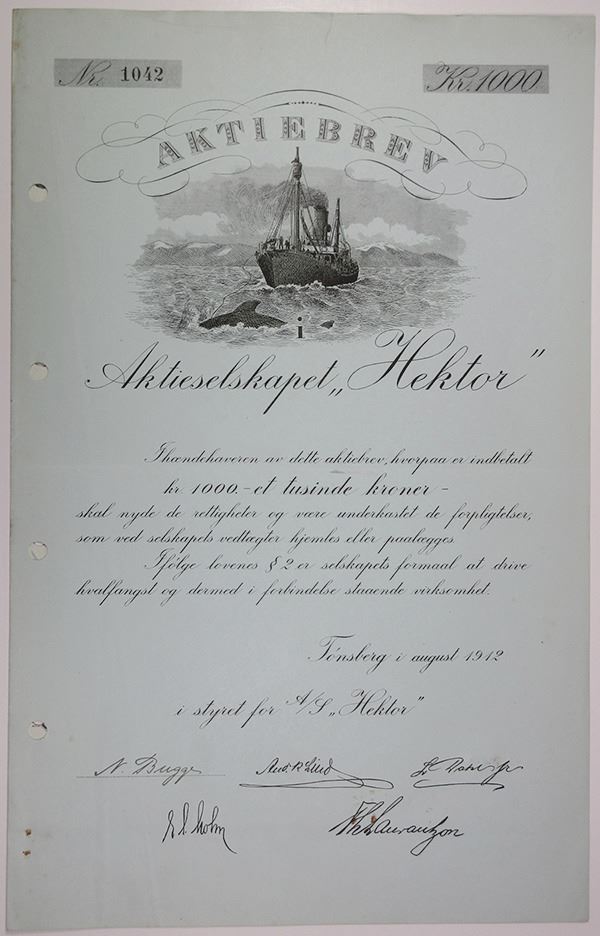 Nr. 1042
Kr. 1000
AKTIEBREV
i
Aktieselskapet „Hektor”
Ihændehaveren av dette aktiebrev, hvorpaa er indbetalt
kr. 1000.- et tusinde kroner -
skal nyde de rettigheter og være underkastet de forpligtelser,
som ved selskapets vedtægter hjemles eller paalægges.
Ifølge lovenes § 2 er selskapets formaal at drive
hvalfangst og dermed i forbindelse staaende virksomhet.
Tønsberg i august 1912
i styret for A/S „Hektor”
N. Bugge
L. Dahl jr